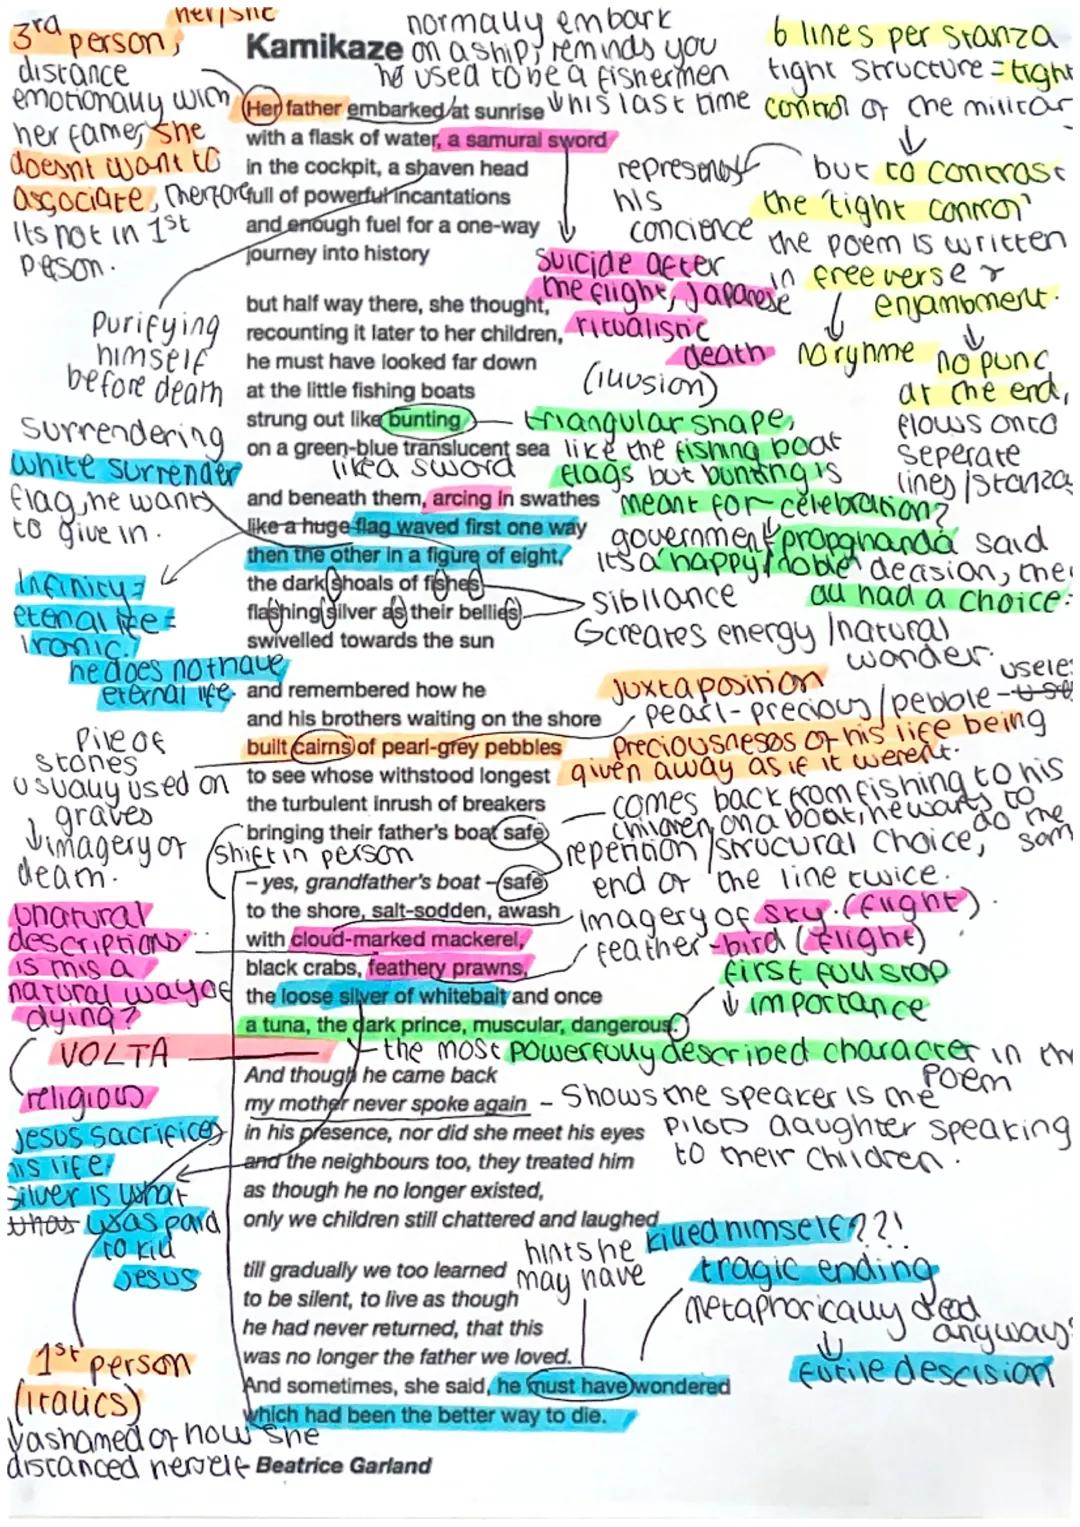 her/she
3rd person,
distance
emotionally with
her father, she
doesnt want to
associate, therfore
Its not in 1st
person.
normally embark
on a ship, reminds you
he used to be a fishermen
his last time
6 lines per stanza
tight structure = tight
control of the militar
but to contrast
the 'tight control'
the poem is written
in free verse &
enjambment.
no ryhme
no punc
at the end,
flows onto
seperate
lines/stanzas
Kamikaze
Her father embarked at sunrise
with a flask of water, a samurai sword
in the cockpit, a shaven head
full of powerful incantations
and enough fuel for a one-way
journey into history
represents
his
concience
suicide after
the flight, Japanese
ritualistic
death
(illusion)
Purifying
himself
before death
but half way there, she thought,
recounting it later to her children,
he must have looked far down
at the little fishing boats
strung out like bunting
on a green-blue translucent sea
triangular shape,
like the fishing boat
flags but bunting is
meant for celebration?
government propgnanda said
its a 'happy/noble' decision, the
all had a choice.
surrendering
white surrender
flag, he wants
to give in.
like a sword
and beneath them, arcing in swathes
like a huge flag waved first one way
then the other in a figure of eight,
the dark shoals of fishes
flashing silver as their bellies
swivelled towards the sun
Infinity =
eternal life =
ironic.
he does not have
eternal life.
Sibilance
creates energy /natural
wonder.
and remembered how he
and his brothers waiting on the shore
built cairns of pearl-grey pebbles
to see whose withstood longest
the turbulent inrush of breakers
bringing their father's boat safe
Juxtaposition
pearl-precious/pebble-
useles
preciousnesos of his life being
given away as if it werent.
Pile of
stones
usually used on
graves
imagery of
death.
comes back from fishing to his
children, on a boat, he wants to
do the sam
repetition /strucural choice,
end of the line twice.
shift in person
– yes, grandfather's boat – safe
to the shore, salt-sodden, awash
with cloud-marked mackerel,
black crabs, feathery prawns,
the loose silver of whitebait and once
a tuna, the dark prince, muscular, dangerous.
imagery of sky. (flight).
feather-bird (flight)
first full stop
importance
unatural
descriptions
is this a
natural way of
dying?
VOLTA
the most powerfully described character in th
poem
And though he came back
my mother never spoke again
in his presence, nor did she meet his eyes
and the neighbours too, they treated him
as though he no longer existed,
only we children still chattered and laughed
Shows the speaker is the
pilots daughter speaking
to their children.
religious
Jesus sacrifices
his life.
silver is what
was paid
to kill
Jesus
till gradually we too learned
to be silent, to live as though
he had never returned, that this
was no longer the father we loved.
And sometimes, she said, he must have wondered
which had been the better way to die.
hints he
may have
killed himself??!
tragic ending
metaphorically dead
anyways
futile descision
1st person
(italics)
ashamed of how she
distanced herself
Beatrice Garland